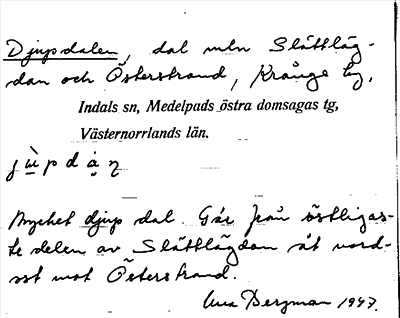 Djupdalen, dal mln Slåttläg-
dan och Österstrand, Krånge by,
Indals sn, Medelpads östra domsagas tg,
Västernorrlands län.
jùpdàṇ
Mycket djup dal. Går från östligas-
te delen av Slåttlägdan åt nord-
ost mot Österstrand.
Bergman 1947.